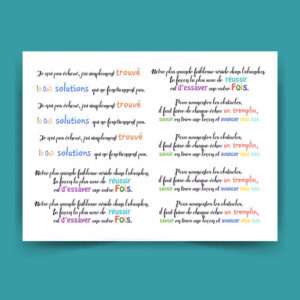 Je n'ai pas échoué, j'ai simplement trouvé
10 000 solutions qui ne fonctionnent pas.
Je n'ai pas échoué, j'ai simplement trouvé
10 000 solutions qui ne fonctionnent pas.
Je n'ai pas échoué, j'ai simplement trouvé
10 000 solutions qui ne fonctionnent pas.
Notre plus grande faiblesse réside dans l'abandon,
la façon la plus sûre de réussir
est d'essayer une autre Fois.
Notre plus grande faiblesse réside dans l'abandon,
la façon la plus sûre de réussir
est d'essayer une autre Fois.
Notre plus grande faiblesse réside dans l'abandon,
la façon la plus sûre de réussir
est d'essayer une autre Fois.
Pour surmonter les obstacles,
il faut faire de chaque échec un tremplin,
savoir en tirer une leçon et avancer plus loin.
Pour surmonter les obstacles,
il faut faire de chaque échec un tremplin,
savoir en tirer une leçon et avancer plus loin.
Pour surmonter les obstacles,
il faut faire de chaque échec un tremplin,
savoir en tirer une leçon et avancer plus loin.